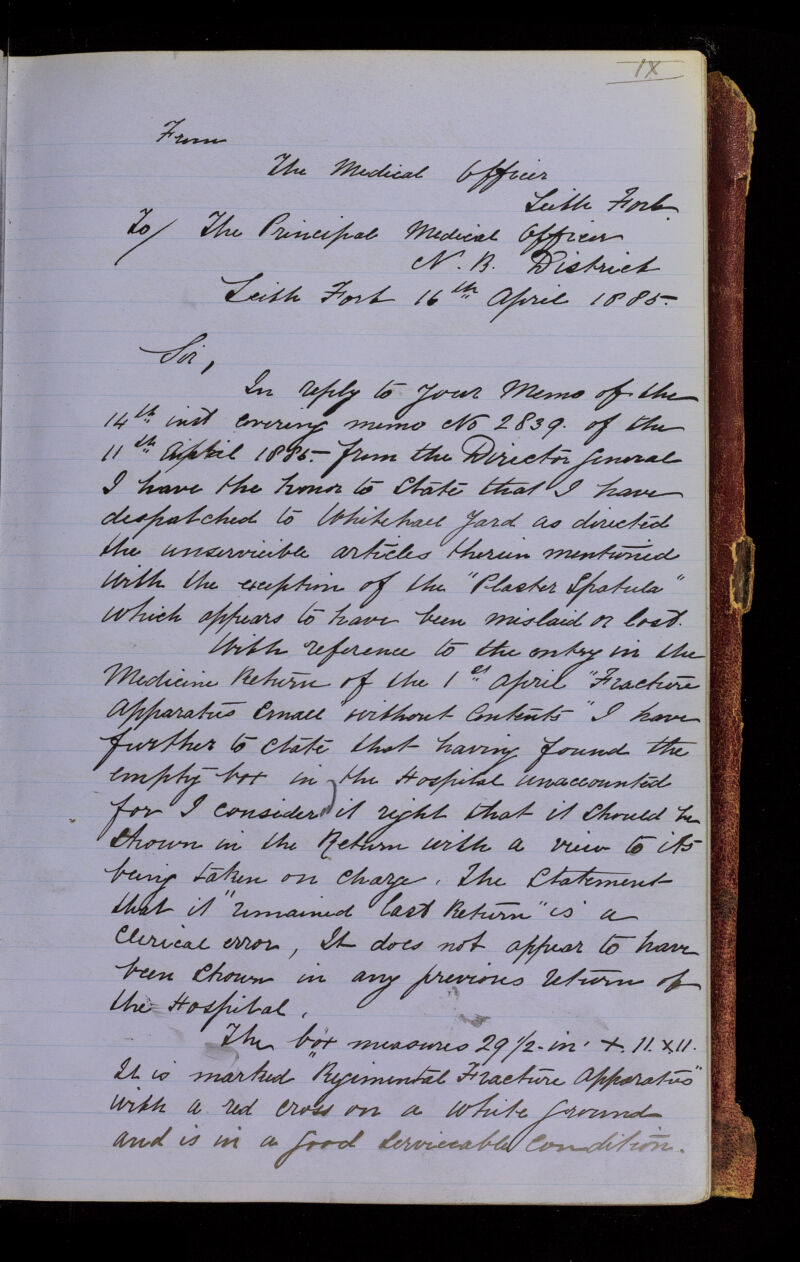 IX
From
The Medical Officer
Leith Fort
To/ The Principal Medical Officer
N. B. District
Leith Fort 16th April 1885.
Sir,
In reply to your Memo of the
14th inst covering memo No 2839. of the
11th April 1885 - from the Director General
I have the honor to state that I have
despatched to Whitehall Yard as directed
the unservicible articles therein mentioned
with the exception of the "Plaster Spatula"
which appears to have been mislaid or lost.
With reference to the entry in the
Medicine Return of the 1st April "Fracture
Apparatus Small without Contents" I have
further to state that having found the
empty box in the Hospital unaccounted
for I consider it right that it should be
shown in the Return with a view to its
being taken on charge. The Statement
that it "remained last Return" is a
Clerical error, It does not appear to have
been shown in any previous return of
the Hospital.
The box measures 29 1/2 - in. x. 11. x 11.
It is marked "Regimental Fracture Apparatus"
with a red cross on a white ground
and is in a good serviceable condition.